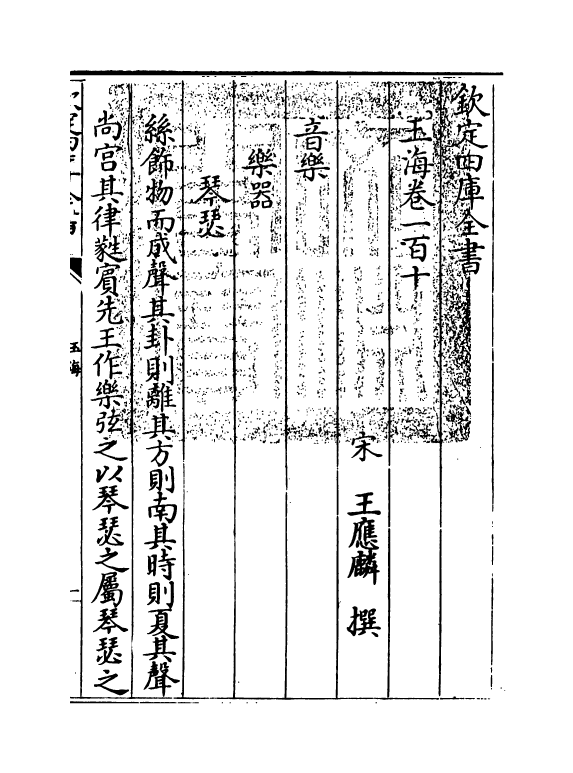 欽定四庫全書
玉海卷一百十
宋 王應麟 撰
音樂
樂器
琴瑟
絲飾物而成聲其卦則離其方則南其時則夏其聲
尚宫其律蕤賓先王作樂弦之以琴瑟之屬琴瑟之
玉海